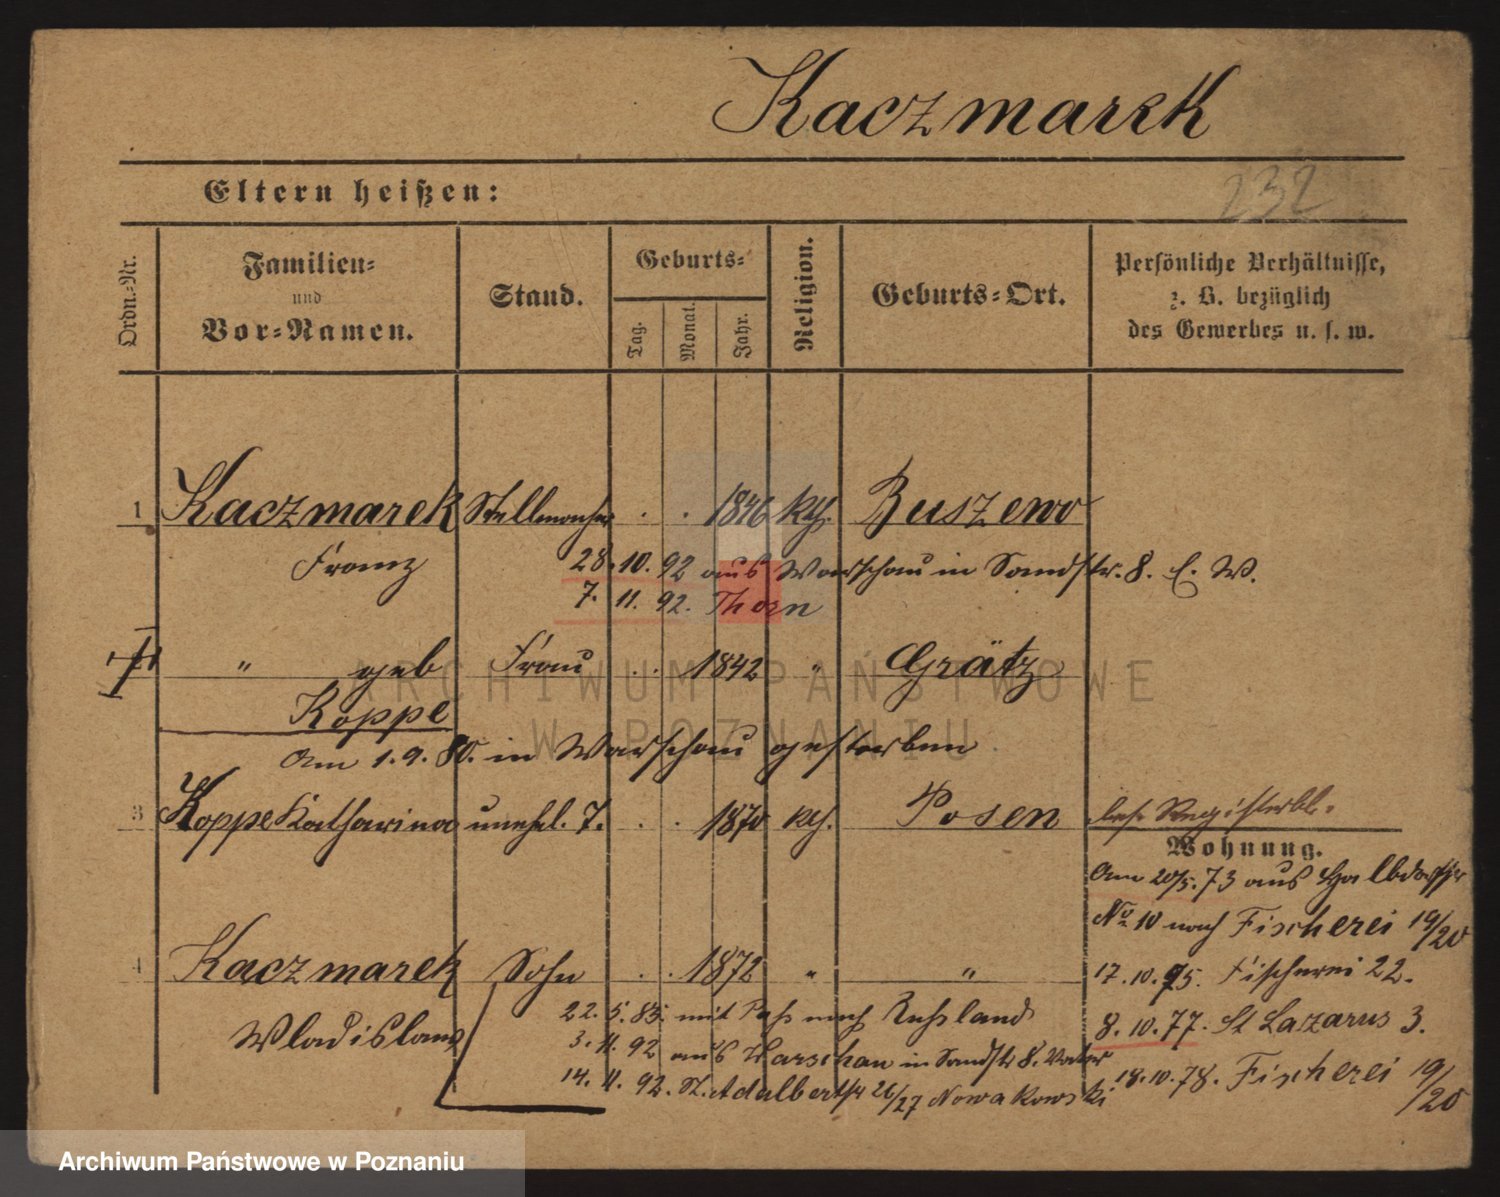 Kaczmarek
Eltern heißen:
232
Ordn.-Nr.
Familien-
und
Vor-Namen.
Stand.
Geburts-
Tag.
Monat.
Jahr.
Religion.
Geburts-Ort.
Persönliche Verhältnisse,
z. B. bezüglich
des Gewerbes u. s. w.
1 Kaczmarek Stellmacher . . 1846 kth. Buszewo
Franz
28. 10. 92 aus Warschau in Sandstr. 8. E. W.
7. 11. 92. Thorn
" geb Frau . . 1842 " Grätz
Koppe
Am 1. 9. 80. in Warschau gestorben
3 Koppe Katharina unehl. T. . . 1870 kth. Posen bes. Registerbl.
Wohnung.
Am 20/5. 73 aus Halbdorfstr
No 10 nach Fischerei 19/20
4 Kaczmarek Sohn . . 1872 " "
Wladislaus
17. 10. 75. Fischerei 22.
22. 5. 83. mit Paß nach Rußland
8. 10. 77. St Lazarus 3.
3. 11. 92 aus Warschau in Sandstr 8. Vater
18. 10. 78. Fischerei 19/20
14. 11. 92. St. Adalbertstr 26/27 Nowakowski
ARCHIWUM PAŃSTWOWE
W POZNANIU
Archiwum Państwowe w Poznaniu